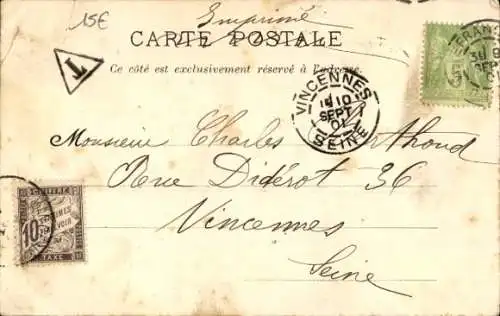 15€
Imprimé
CARTE POSTALE
Ce côté est exclusivement réservé à l'adresse
T
5
VINCENNES
10
SEPT
01
SEINE
Monsieur Charles
Rue Didérot 36
Vincennes
Seine
CHIFFRE
10
TAXE